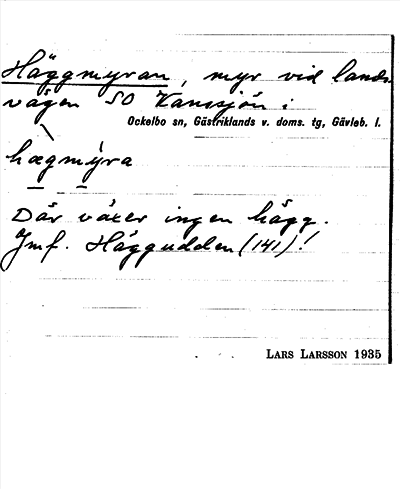 Häggmyran, myr vid lands-
vägen SO Kamsjön i
Ockelbo sn, Gästriklands v. doms. tg, Gävleb. l.
hægmýra
Där växer ingen hägg.
Jmf. Häggudden (141)!
LARS LARSSON 1935